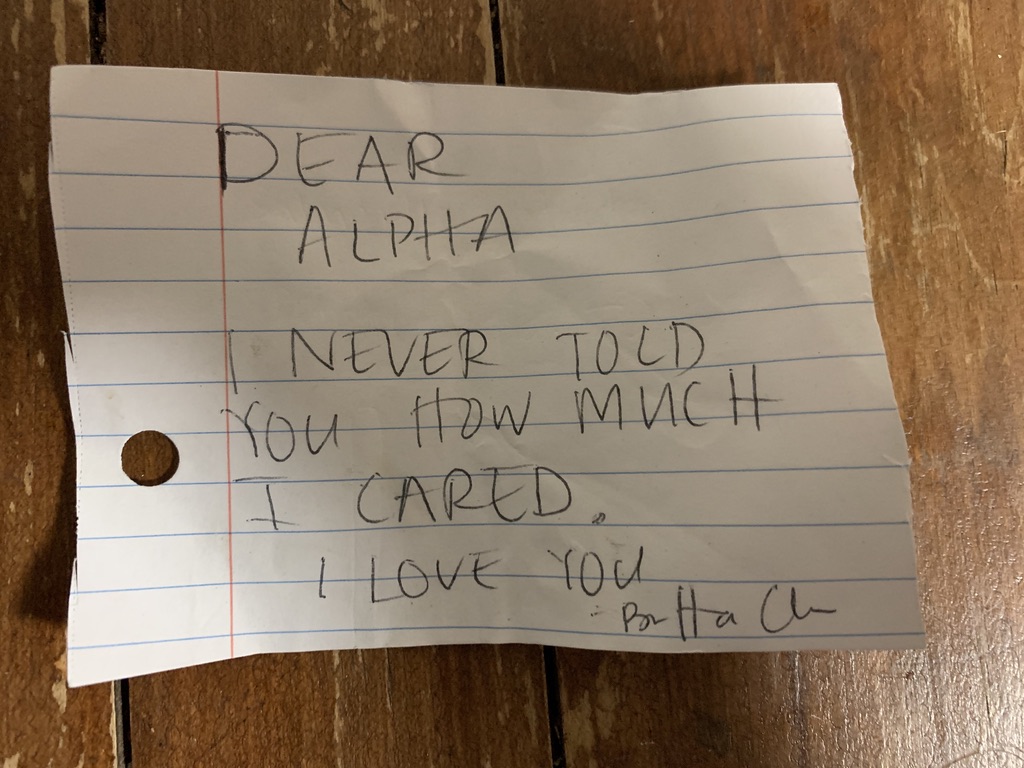 DEAR
ALPHA
I NEVER TOLD
YOU HOW MUCH
I CARED.
I LOVE YOU